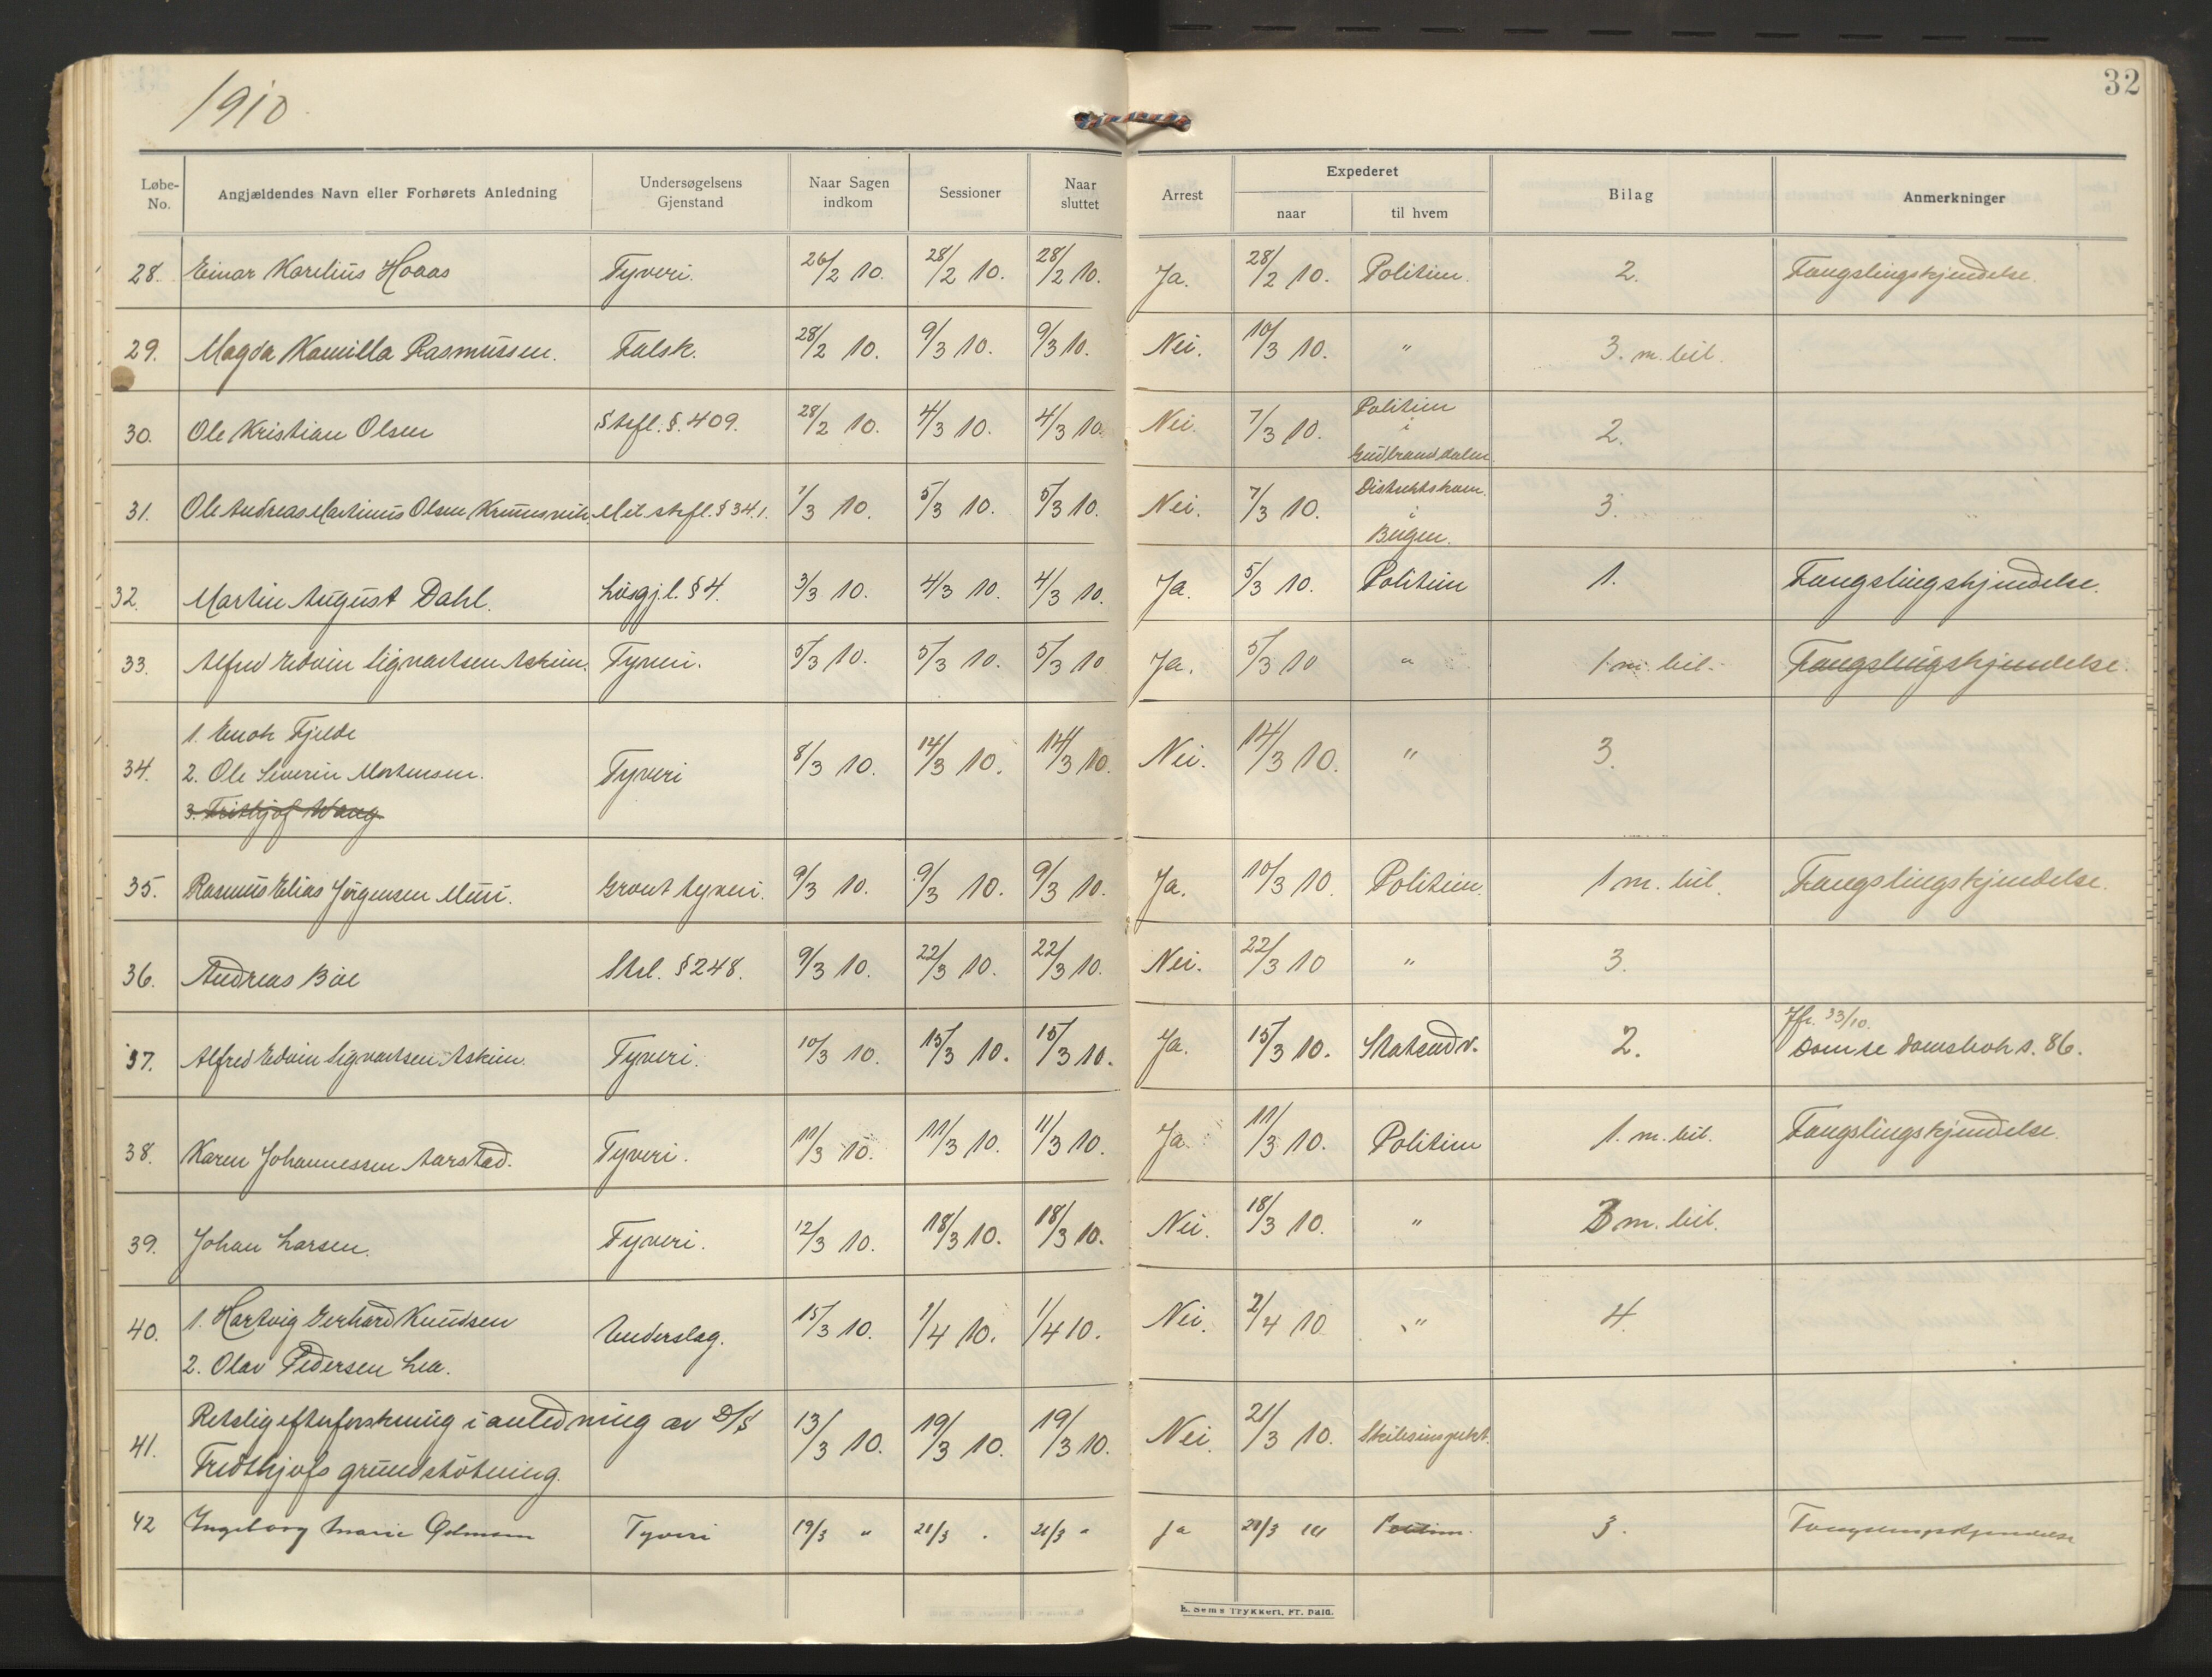 1910
32
Løbe-No. Angjældendes Navn eller Forhørets Anledning Undersøgelsens Gjenstand Naar Sagen indkom Sessioner Naar sluttet Arrest Expederet naar til hvem Bilag Anmerkninger
28. Einar Karelius Hovas Tyveri. 26/2 10. 28/2 10. 28/2 10. Ja. 28/2 10. Politiin. 2. Fængslingskjendelse.
29. Magda Kamilla Rasmussen. Falsk. 28/2 10. 9/3 10. 9/3 10. Nei. 10/3 10. " 3. m. bil.
30. Ole Kristian Olsen Strfl. §. 409. 28/2 10. 4/3 10. 4/3 10. Nei. 7/3 10. Politiin i Gudbrandsdalen. 2.
31. Ole Andreas Martinus Olsen Mil. strfl. § 34.1. 1/3 10. 5/3 10. 5/3 10. Nei. 7/3 10. i 3.
32. Martin August Dahl. Løsgj.l. § 4. 3/3 10. 4/3 10. 4/3 10. Ja. 5/3 10. Politiin 1. Fængslingskjendelse.
33. Alfred Edvin Sigvartsen Askim. Tyveri. 5/3 10. 5/3 10. 5/3 10 Ja. 5/3 10 " 1 m. bil. Fængslingskjendelse.
34. 1. Enok Fjelde
2. Ole Severin Mortensen.
3. Frithjof Wang
Tyveri 8/3 10. 14/3 10. 14/3 10. Nei. 14/3 10. " 3.
35. Rasmus Elias Jørgensen Muri. Grovt tyveri. 9/3 10. 9/3 10. 9/3 10. Ja. 10/3 10. Politiin. 1 m. bil. Fængslingskjendelse.
36. Andreas Bøe Strl. § 248. 9/3 10. 22/3 10. 22/3 10. Nei. 22/3 10 " 3.
37. Alfred Edvin Sigvartsen Askim. Tyveri. 10/3 10. 15/3 10. 15/3 10. Ja. 15/3 10. Statsadv. 2. Jfr. 33/10.
Dom se domsbok s. 86.
38. Karen Johannessen Aarstad. Tyveri. 11/3 10. 11/3 10. 11/3 10. Ja. 11/3 10. Politiin 1. m. bil. Fængslingskjendelse.
39. Johan Larsen. Tyveri. 12/3 10. 18/3 10. 18/3 10. Nei. 18/3 10. " 3 m. bil.
40. 1. Hartvig Gerhard Knudsen
2. Olav Pedersen Lea.
Underslag. 15/3 10. 1/4 10. 1/4 10. Nei. 2/4 10 " 4.
41. Retslig efterforskning i anledning av D/S
Fridthjofs grundstøtning.
13/3 10. 19/3 10. 19/3 10. Nei. 21/3 10. Skibsinspekt.
42 Ingeborg Marie Tyveri 19/3 " 21/3 " 21/3 " Ja 21/3 10 Politiin. 3. Fængslingskjendelse
E. Sems Trykkeri, Fr.hald.